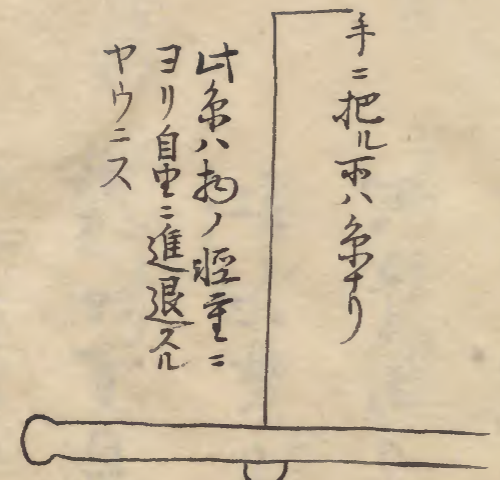 手ニ把ル所ハ糸ナリ
此糸ハ物ノ軽重ニ
ヨリ自由ニ進退スル
ヤウニス